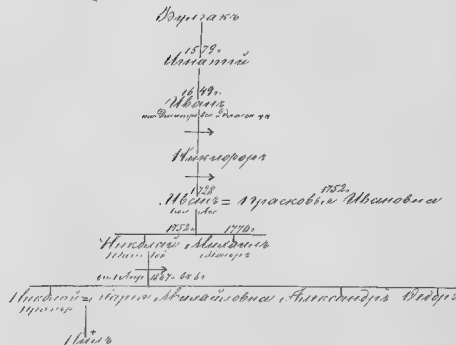 Булгакъ
1579г.
Игнатій
1649г.
Иванъ
Никифоръ
1728
Иванъ = Прасковья Ивановна
1752г.
1752г. 1774г.
Николай Михаилъ
Маіоръ
1867г.
Николай = Марія Михайловна Александръ Ѳедоръ
Нилъ